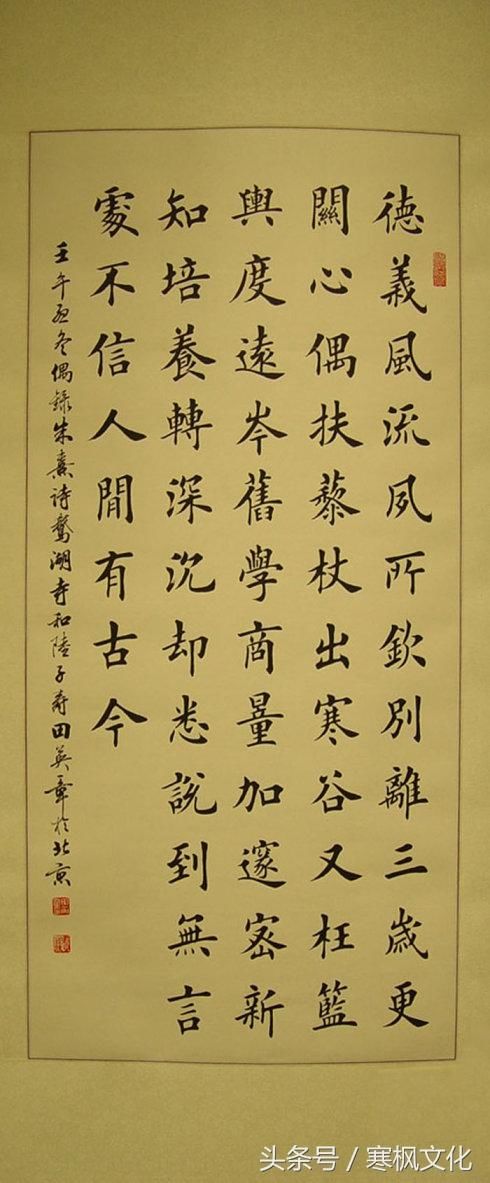 德義風流夙所欽別離三歲更
關心偶扶藜杖出寒谷又枉籃
輿度遠岑舊學商量加邃密新
知培養轉深沉却悉說到無言
處不信人間有古今
壬午孟冬偶錄朱熹詩鵝湖寺和陸子壽田英章於北京
头条号 / 寒枫文化